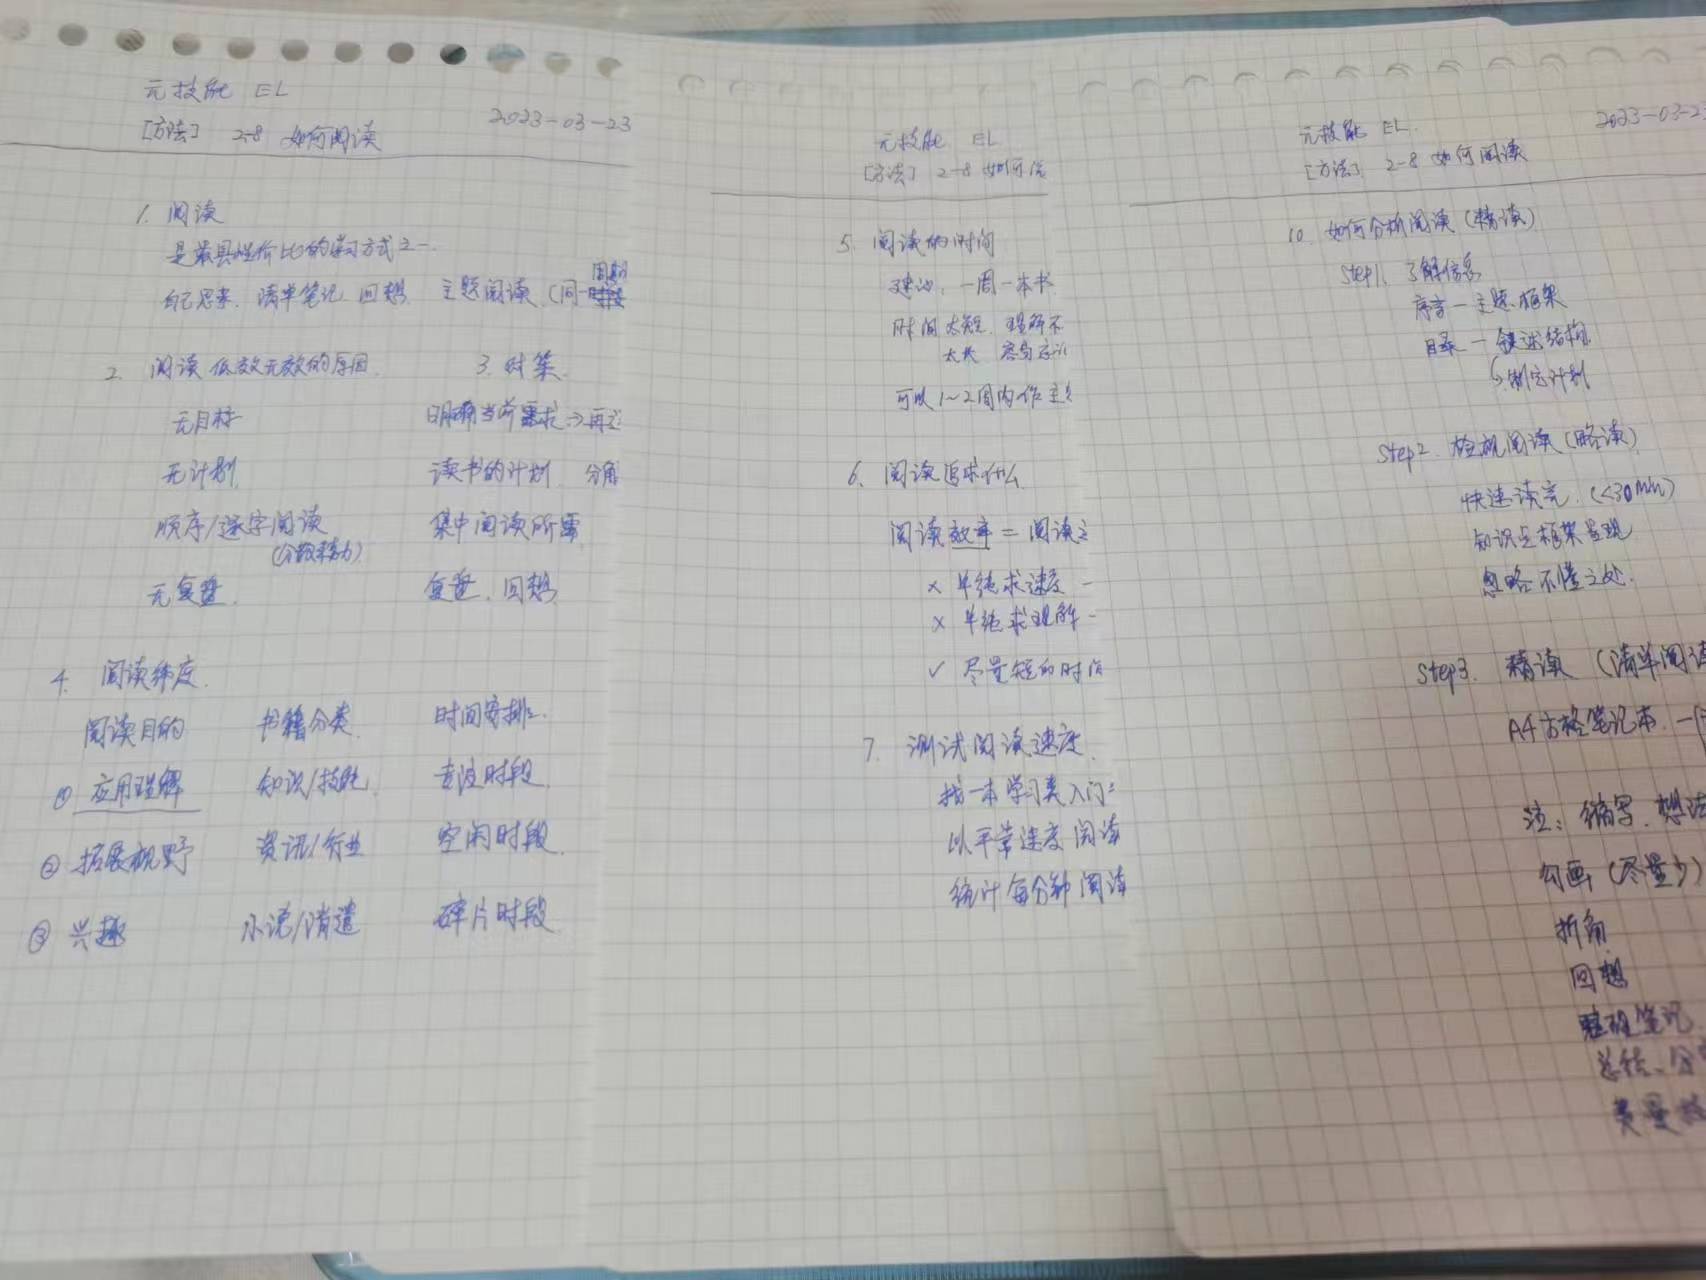 元技能 EL
[方法] 2-8 如何阅读 2023-03-23
1. 阅读
是最具性价比的学习方式之一.
自己思来. 清单笔记 回想. 主题阅读 (同一周期
2. 阅读低效无效的原因. 3. 对策.
无目标 明确当前需求 → 再
无计划. 读书的计划. 分
顺序/逐字阅读 集中阅读所需
(分散精力)
无复盘. 复盘、回想.
4. 阅读纬度.
阅读目的 书籍分类. 时间安排.
① 应用理解 知识/技能. 专注时段.
② 拓展视野 资讯/行业 空闲时段.
③ 兴趣 小说/消遣 碎片时段.
元技能 EL
[方法] 2-8 如何
5. 阅读的时间
建议: 一周一本书
时间太短. 理解不
太长 容易忘
可以1~2周内作主
6. 阅读追求什么
阅读效率 = 阅读
× 单纯求速度 -
× 单纯求理解 -
✓ 尽量短的时间
7. 测试阅读速度.
找一本学习类入门
以平常速度阅读
统计每分钟阅读
元技能 EL.
[方法]. 2-8 如何阅读 2023-03-23
10. 如何分析阅读 (精读)
Step1. 了解信息
序言 — 主题. 框架
目录 — 结构
制定计划
Step2. 检视阅读 (略读)
快速读完. (<30min)
知识点框架呈现
忽略不懂之处.
Step3. 精读 (清单阅读
A4方格笔记本. 一
注: 缩写. 想法
勾画 (尽量少)
折角
回想
整理笔记
总结、分